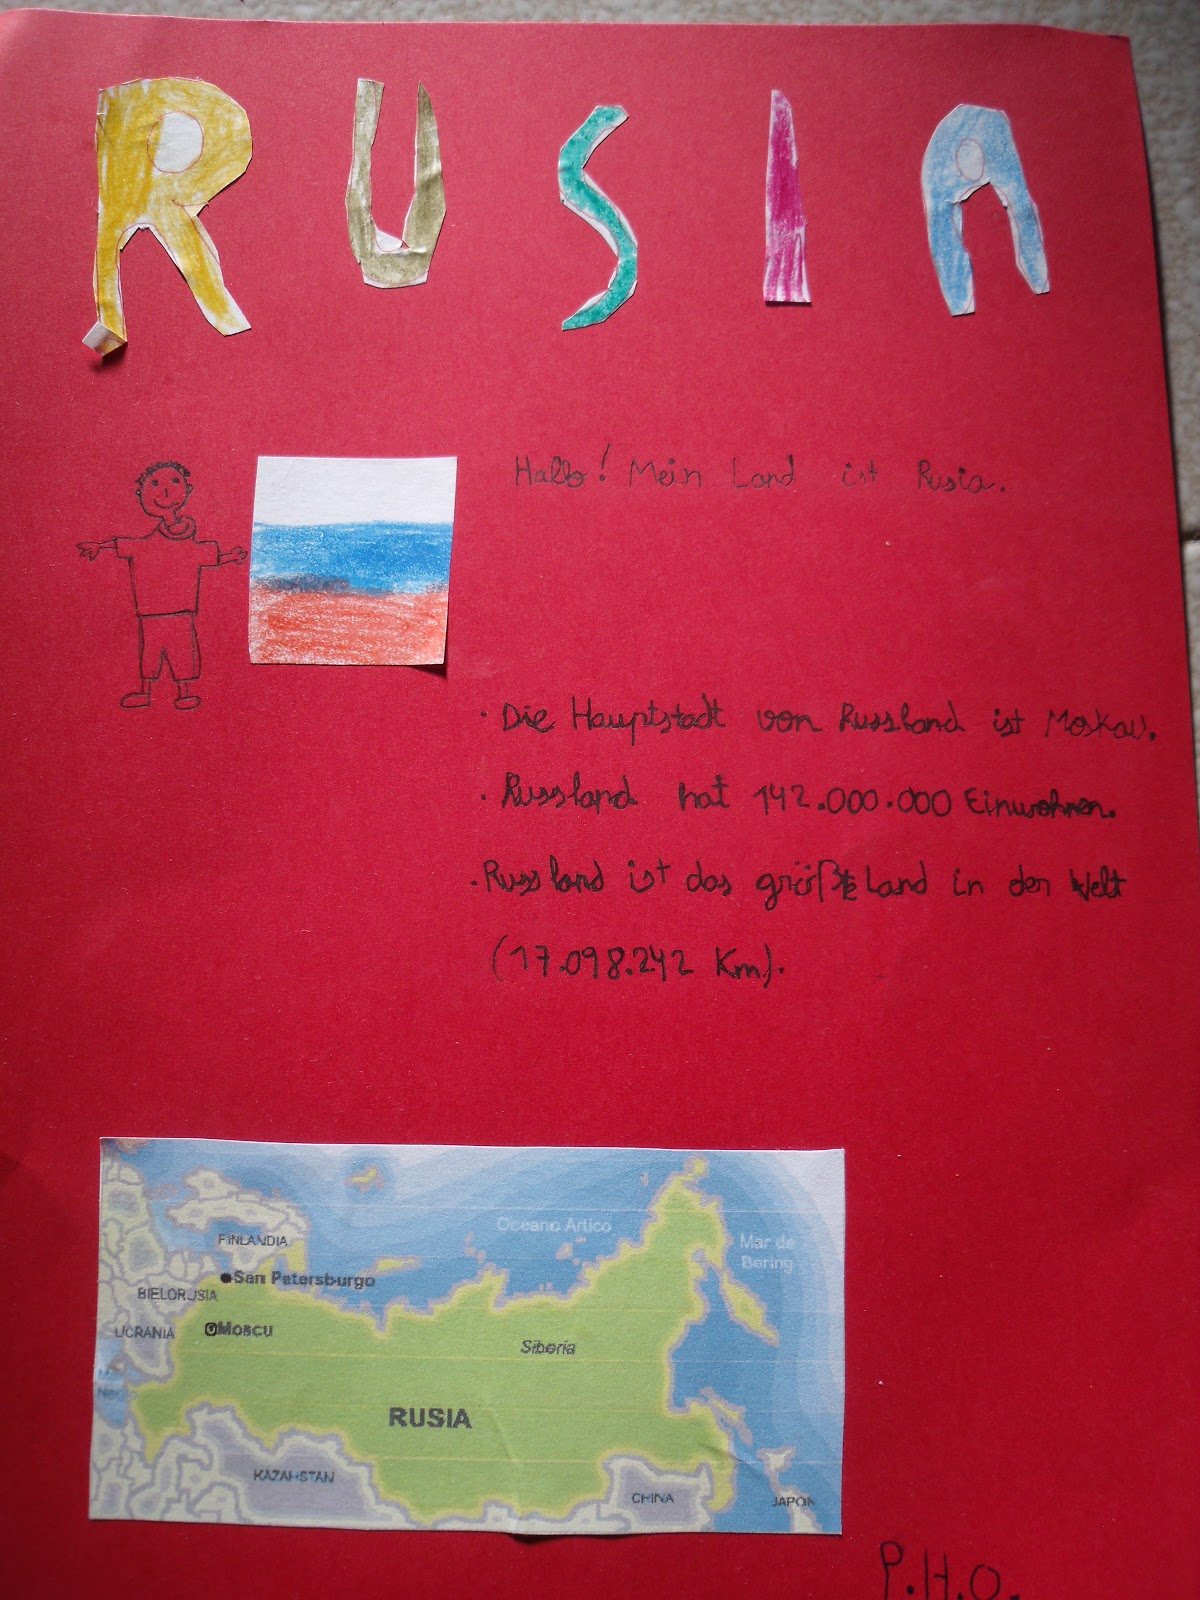 RUSIA
Hallo! Mein Land ist Rusia.
· Die Hauptstadt von Russland ist Moskau.
· Russland hat 142.000.000 Einwohner.
· Russland ist das größte Land in der Welt
(17.098.242 Km).
Oceano Artico
Mar de
Bering
FINLANDIA
San Petersburgo
BIELORUSIA
UCRANIA
Moscu
Siberia
Mar
Negro
RUSIA
KAZAHSTAN
CHINA
JAPON
P.H.O.